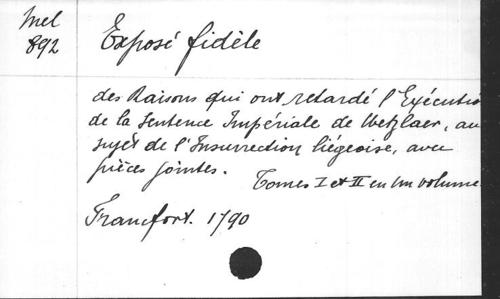 Mel
892
Exposé fidèle
des Raisons qui ont retardé l'Exécutio
de la Sentence Impériale de Wetzlaer, au
sujet de l'Insurrection liégeoise, avec
pièces jointes.
Tomes I et II en un volume
Francfort. 1790